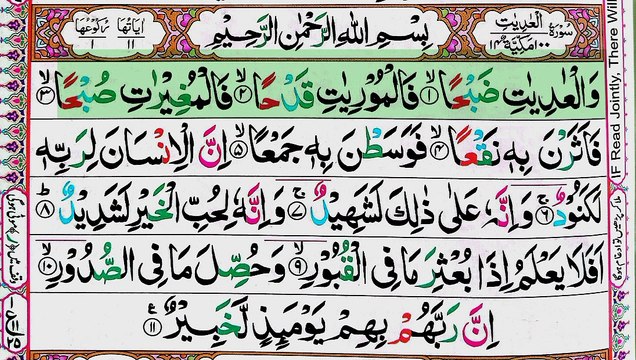 سُوْرَةُ الْعٰدِيٰتِ
١٠٠ مَكِّيَّةٌ ١٤
بِسْمِ اللّٰهِ الرَّحْمٰنِ الرَّحِيْمِ
اٰيَاتُهَا ١١ رُكُوْعُهَا ١
وَالْعٰدِيٰتِ ضَبْحًا ۱ فَالْمُوْرِيٰتِ قَدْحًا ۲ فَالْمُغِيْرٰتِ صُبْحًا ۳
فَاَثَرْنَ بِهٖ نَقْعًا ۴ فَوَسَطْنَ بِهٖ جَمْعًا ۵ اِنَّ الْاِنْسَانَ لِرَبِّهٖ
لَكَنُوْدٌ ۚ ۶ وَاِنَّهٗ عَلٰى ذٰلِكَ لَشَهِيْدٌ ۚ ۷ وَاِنَّهٗ لِحُبِّ الْخَيْرِ لَشَدِيْدٌ ؕ ۸
اَفَلَا يَعْلَمُ اِذَا بُعْثِرَ مَا فِى الْقُبُوْرِ ۙ ۹ وَحُصِّلَ مَا فِى الصُّدُوْرِ ۙ ۱۰
اِنَّ رَبَّهُمْ بِهِمْ يَوْمَئِذٍ لَّخَبِيْرٌ ۱۱ ع
IF Read Jointly, There Will